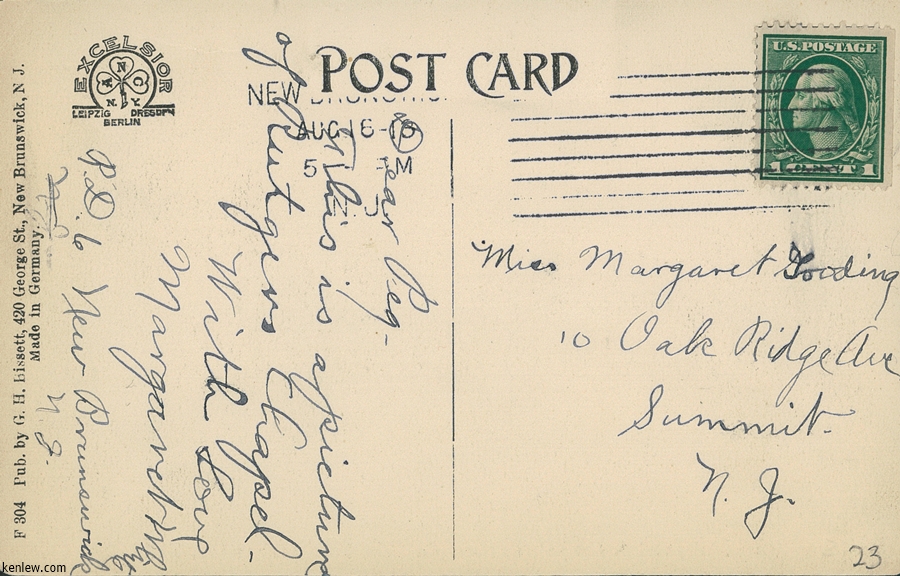 POST CARD
EXCELSIOR
A N C
N. Y.
LEIPZIG DRESDEN
BERLIN
NEW BRUNSWICK
AUG 18
5 PM
N.J.
U.S. POSTAGE
1 CENT 1
Dear Peg-
This is a picture
of Rutgers Chapel-
With love
Margaret
R.D. 6 New Brunswick
N. J.
Miss Margaret Gooding
10 Oak Ridge Ave
Summit.
N. J.
F 304 Pub. by G. H. Bissett, 420 George St., New Brunswick, N. J.
Made in Germany.
23
kenlew.com